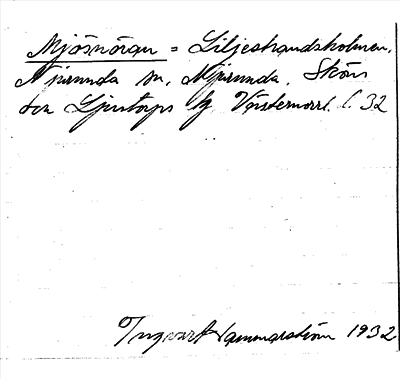 Mjösnöran = Liljestrandsholmen.
Njurunda sn, Njurunda, Sköns
och Ljustorps hg Västernorrl. l. 32
Ingvar Hammarström 1932